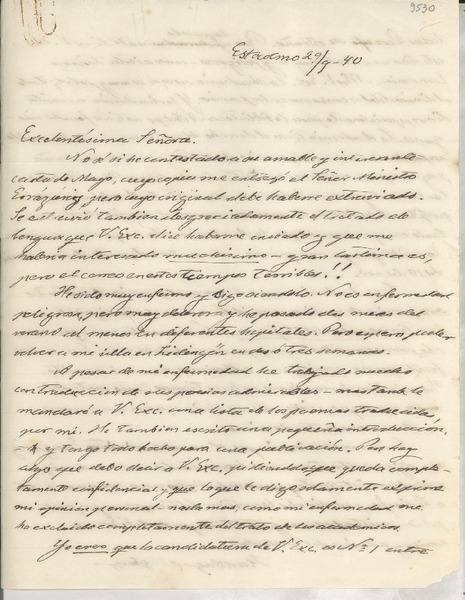 9530
Estocolmo 29/9-40
Excelentísima Señora.
No sé si he contestado a su amable y interesante
carta de Mayo, cuya copia me entregó el Señor Ministro
Errázuriz, pero cuyo original debe haberse extraviado.
Se extravió tambien desgraciadamente el tratado de
lengua que V. Exc. dice haberme enviado y que me
habria interesado muchísimo – gran lástima es,
pero el correo en estos tiempos terribles!!
He sido muy enfermo y sigo siendolo. No es enfermedad
peligrosa, pero muy dolorosa y he pasado dos meses del
verano al menos en diferentes hospitales. Pero espero poder
volver a mi villa en Lidingö en dos ó tres semanas.
A pesar de mi enfermedad he trabajado mucho
con traduccion de sus poesias admirables – mas tarde le
mandaré a V. Exc. una lista de los poemas traducidos
por mi. He tambien escrito una pequeña introduccion,
y tengo todo hecho para una publicación. Pero hay
algo que debo decir a V. Exc. pidiendole que queda comple-
tamente confidencial y que lo que le digo solamente exprime
mi opinion personal nada mas, como mi enfermedad me
ha excluido completamente del trato de los académicos.
Yo creo que la candidatura de V. Exc. es Nº 1 entre